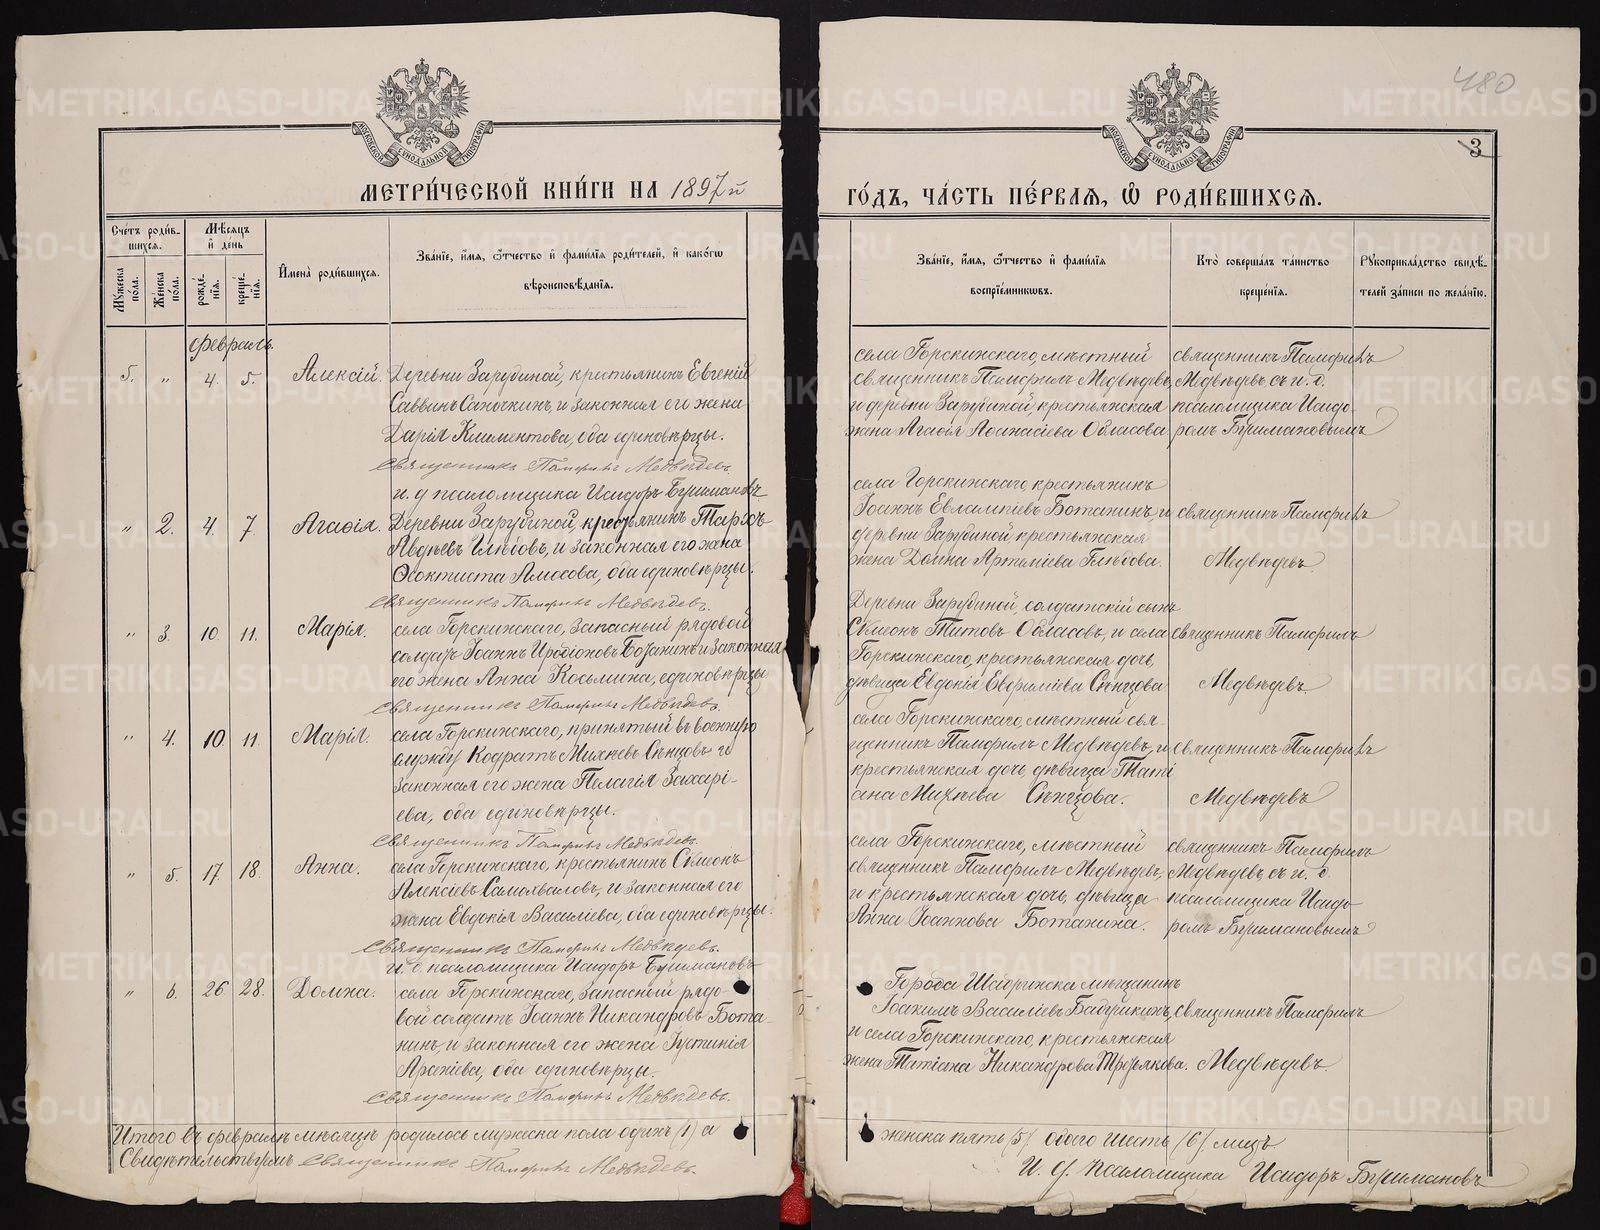 480
3
МОСКОВСКОЙ СѴНОДАЛЬНОЙ ТИПОГРАФІИ
МОСКОВСКОЙ СѴНОДАЛЬНОЙ ТИПОГРАФІИ
МЕТРИ́ЧЕСКОЙ КНИ́ГИ НА 1897й
ГО́ДЪ, ЧА́СТЬ ПЕ́РВАѦ, Ѡ РОДИ́ВШИХСѦ.
Сче́тъ роди́в-
шихся.
Мѣ́сяцъ
и҆ де́нь
Мꙋ́жеска
по́ла.
Же́нска
по́ла.
рожде́-
нїѧ.
креще́-
нїѧ.
И҆мена̀ роди́вшихсѧ.
Зва́нїе, и҆́мѧ, ѻ҆́тчество и҆ фами́лїѧ роди́телей, и҆ како́гѡ
вѣроисповѣ́данїѧ.
Зва́нїе, и҆́мѧ, ѻ҆́тчество и҆ фами́лїѧ
воспрїе́мникѡвъ.
Кто̀ соверша́лъ та́инство
креще́нїѧ.
Рꙋкоприкла́дство свидѣ́-
телей за́писи по жела́нїю.
Февраль.
5. " 4. 5. Алексій. Деревни Зарубиной, крестьянинъ Евгеній
Саввинъ Саночкинъ, и законная его жена
Дарія Климентова, оба единовѣрцы.
Священникъ Памфилъ Медвѣдевъ.
и. д. псаломщика Исидоръ Буримановъ
села Горскинскаго, мѣстный
священникъ Памфилъ Медвѣдевъ,
и деревни Зарубиной, крестьянская
жена Агафія Аѳанасіева Обласова
священникъ Памфилъ
Медвѣдевъ съ и. д.
псаломщика Исидо-
ромъ Буримановымъ
" 2. 4. 7. Агафія. Деревни Зарубиной, крестьянинъ Тарасъ
Авдѣевъ Глѣбовъ, и законная его жена
Ѳеоктиста Амосова, оба единовѣрцы.
Священникъ Памфилъ Медвѣдевъ.
села Горскинскаго крестьянинъ
Іоаннъ Евлампіевъ Ботанинъ, и
деревни Зарубиной, крестьянская
жена Домна Артеміева Глѣбова.
священникъ Памфилъ
Медвѣдевъ
" 3. 10. 11. Марія. села Горскинскаго, запасный рядовой
солдатъ Іоаннъ Иродіоновъ Ботанинъ и законная
его жена Анна Косьмина, единовѣрцы
Священникъ Памфилъ Медвѣдевъ.
Деревни Зарубиной, солдатскій сынъ
Симеонъ Титовъ Обласовъ, и села
Горскинскаго, крестьянская дочь,
дѣвица Евдокія Евфиміева Сѣнцова
священникъ Памфилъ
Медвѣдевъ
" 4. 10 11 Марія. села Горскинскаго, принятый въ военную
службу Кодратъ Михѣевъ Сѣнцовъ и
законная его жена Пелагія Захарі-
ева, оба единовѣрцы.
Священникъ Памфилъ Медвѣдевъ.
села Горскинскаго, мѣстный свя-
щенникъ Памфилъ Медвѣдевъ, и
крестьянская дочь дѣвица Таті
ана Михѣева Сѣнцова.
священникъ Памфилъ
Медвѣдевъ
" 5. 17. 18. Анна. села Горскинскаго, крестьянинъ Симеонъ
Алексіевъ Самохваловъ, и законная его
жена Евдокія Василіева, оба единовѣрцы.
Священникъ Памфилъ Медвѣдевъ.
и. д. псаломщика Исидоръ Буримановъ
села Горскинскаго, мѣстный
священникъ Памфилъ Медвѣдевъ,
и крестьянская дочь, дѣвица
Анна Іоаннова Ботанина.
священникъ Памфилъ
Медвѣдевъ, съ и. д.
псаломщика Исидо-
ромъ Буримановымъ
" 6. 26 28. Домна. села Горскинскаго, запасный рядо-
вой солдатъ Іоаннъ Никандровъ Бота-
нинъ, и законная его жена Іустинія
оба единовѣрцы.
Священникъ Памфилъ Медвѣдевъ.
Города Шадринска мѣщанинъ
Іоакимъ Василіевъ
и села Горскинскаго, крестьянская
жена Татіана Никандрова Третьякова.
священникъ Памфилъ
Медвѣдевъ
Итого въ февралѣ мѣсяцѣ родилось мужеска пола одинъ (1) а
женска пять (5) обоего шесть (6) лицъ
Свидѣтельствуемъ Священникъ Памфилъ Медвѣдевъ.
И. д. псаломщика Исидоръ Буримановъ
METRIKI.GASO-URAL.RU